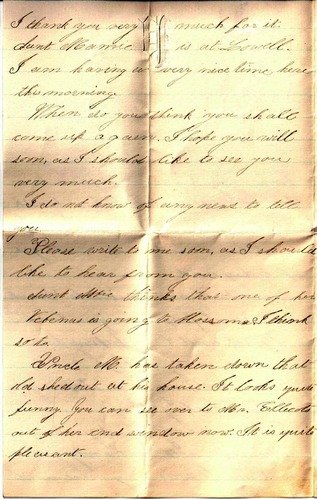 I thank you very much for it.
Aunt Mamie is at Lowell.
I am having a very nice time here
this morning.
When do you think you shall
come up again. I hope you will
soon, as I should like to see you
very much.
I do not know of any news to tell
you.
Please write to me soon, as I should
like to hear from you.
Aunt thinks that one of her
Verbenas is going to blossom. I think
so to.
Uncle M. has taken down that
old shed out at his house. It looks quite
funny. You can see over to Mr. Ellicots
out of her end window now. It is quite
pleasant.